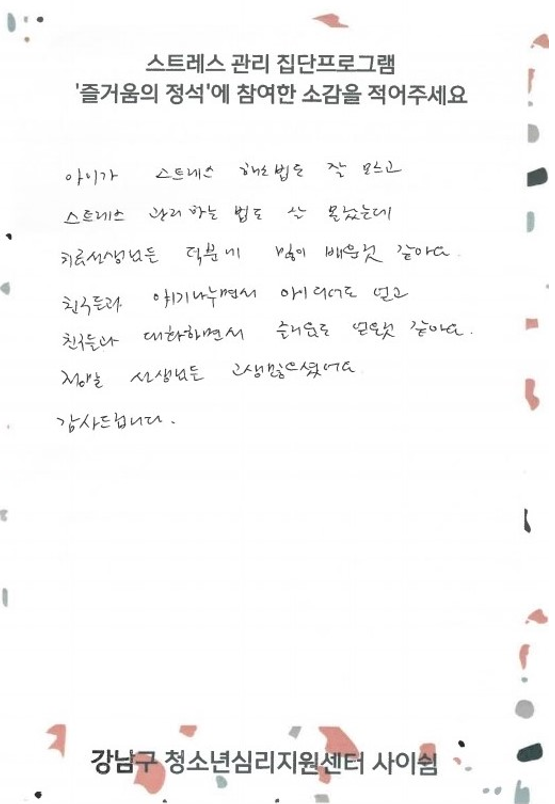 스트레스 관리 집단프로그램
'즐거움의 정석'에 참여한 소감을 적어주세요
아이가 스트레스 해소법도 잘 모르고
스트레스 관리하는 법도 잘 몰랐는데
치료선생님들 덕분에 많이 배운것 같아요.
친구들과 얘기나누면서 아이디어도 얻고
친구들과 대화하면서 즐거움도 얻은것 같아요.
정말 선생님들 고생많으셨어요
감사드립니다.
강남구 청소년심리지원센터 사이쉼